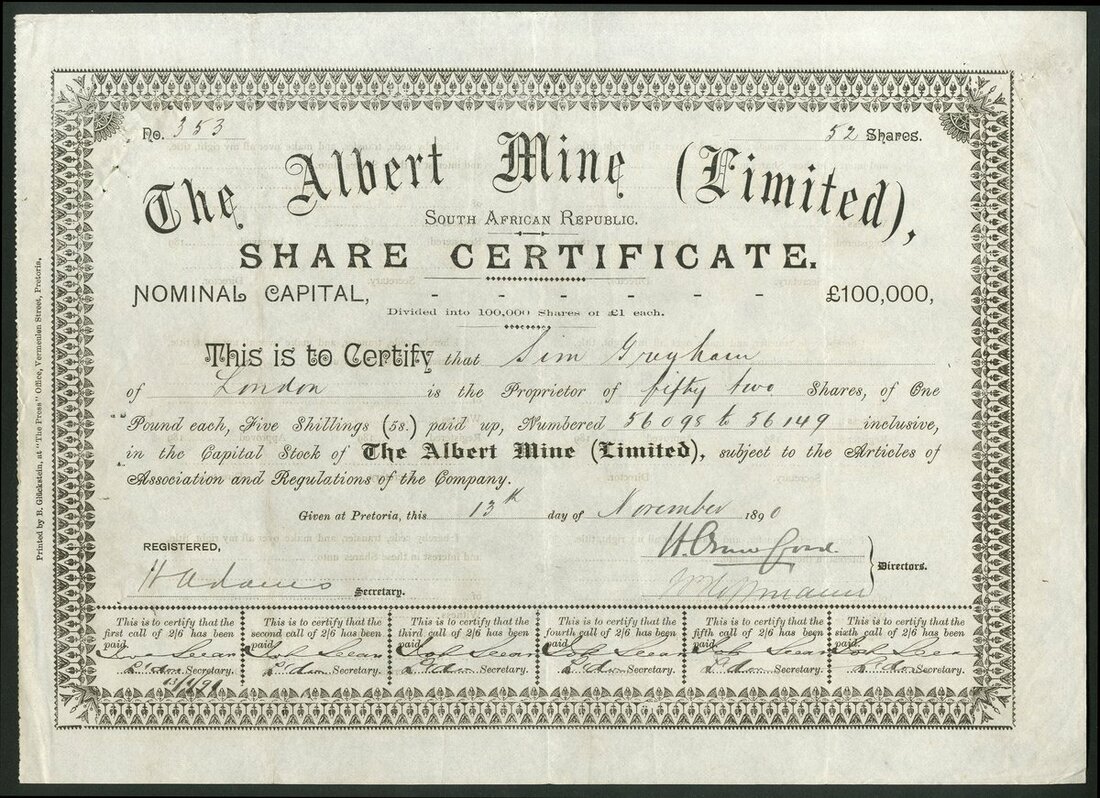 No. 353
52 Shares.
The Albert Mine (Limited),
SOUTH AFRICAN REPUBLIC.
SHARE CERTIFICATE.
NOMINAL CAPITAL, - - - - - - £100,000,
Divided into 100,000 Shares of £1 each.
This is to Certify that Sim Greyham
of London is the Proprietor of fifty two Shares, of One
Pound each, Five Shillings (5s.) paid up, Numbered 56098 to 56149 inclusive,
in the Capital Stock of The Albert Mine (Limited), subject to the Articles of
Association and Regulations of the Company.
Given at Pretoria, this 13th day of November 1890
REGISTERED,
H Adams
Secretary.
Directors.
This is to certify that the
first call of 2/6 has been
paid.
Secretary.
This is to certify that the
second call of 2/6 has been
paid.
Secretary.
This is to certify that the
third call of 2/6 has been
paid.
Secretary.
This is to certify that the
fourth call of 2/6 has been
paid.
Secretary.
This is to certify that the
fifth call of 2/6 has been
paid.
Secretary.
This is to certify that the
sixth call of 2/6 has been
paid.
Secretary.
Printed by B. Glückstein, at "The Press" Office, Vermeulen Street, Pretoria.